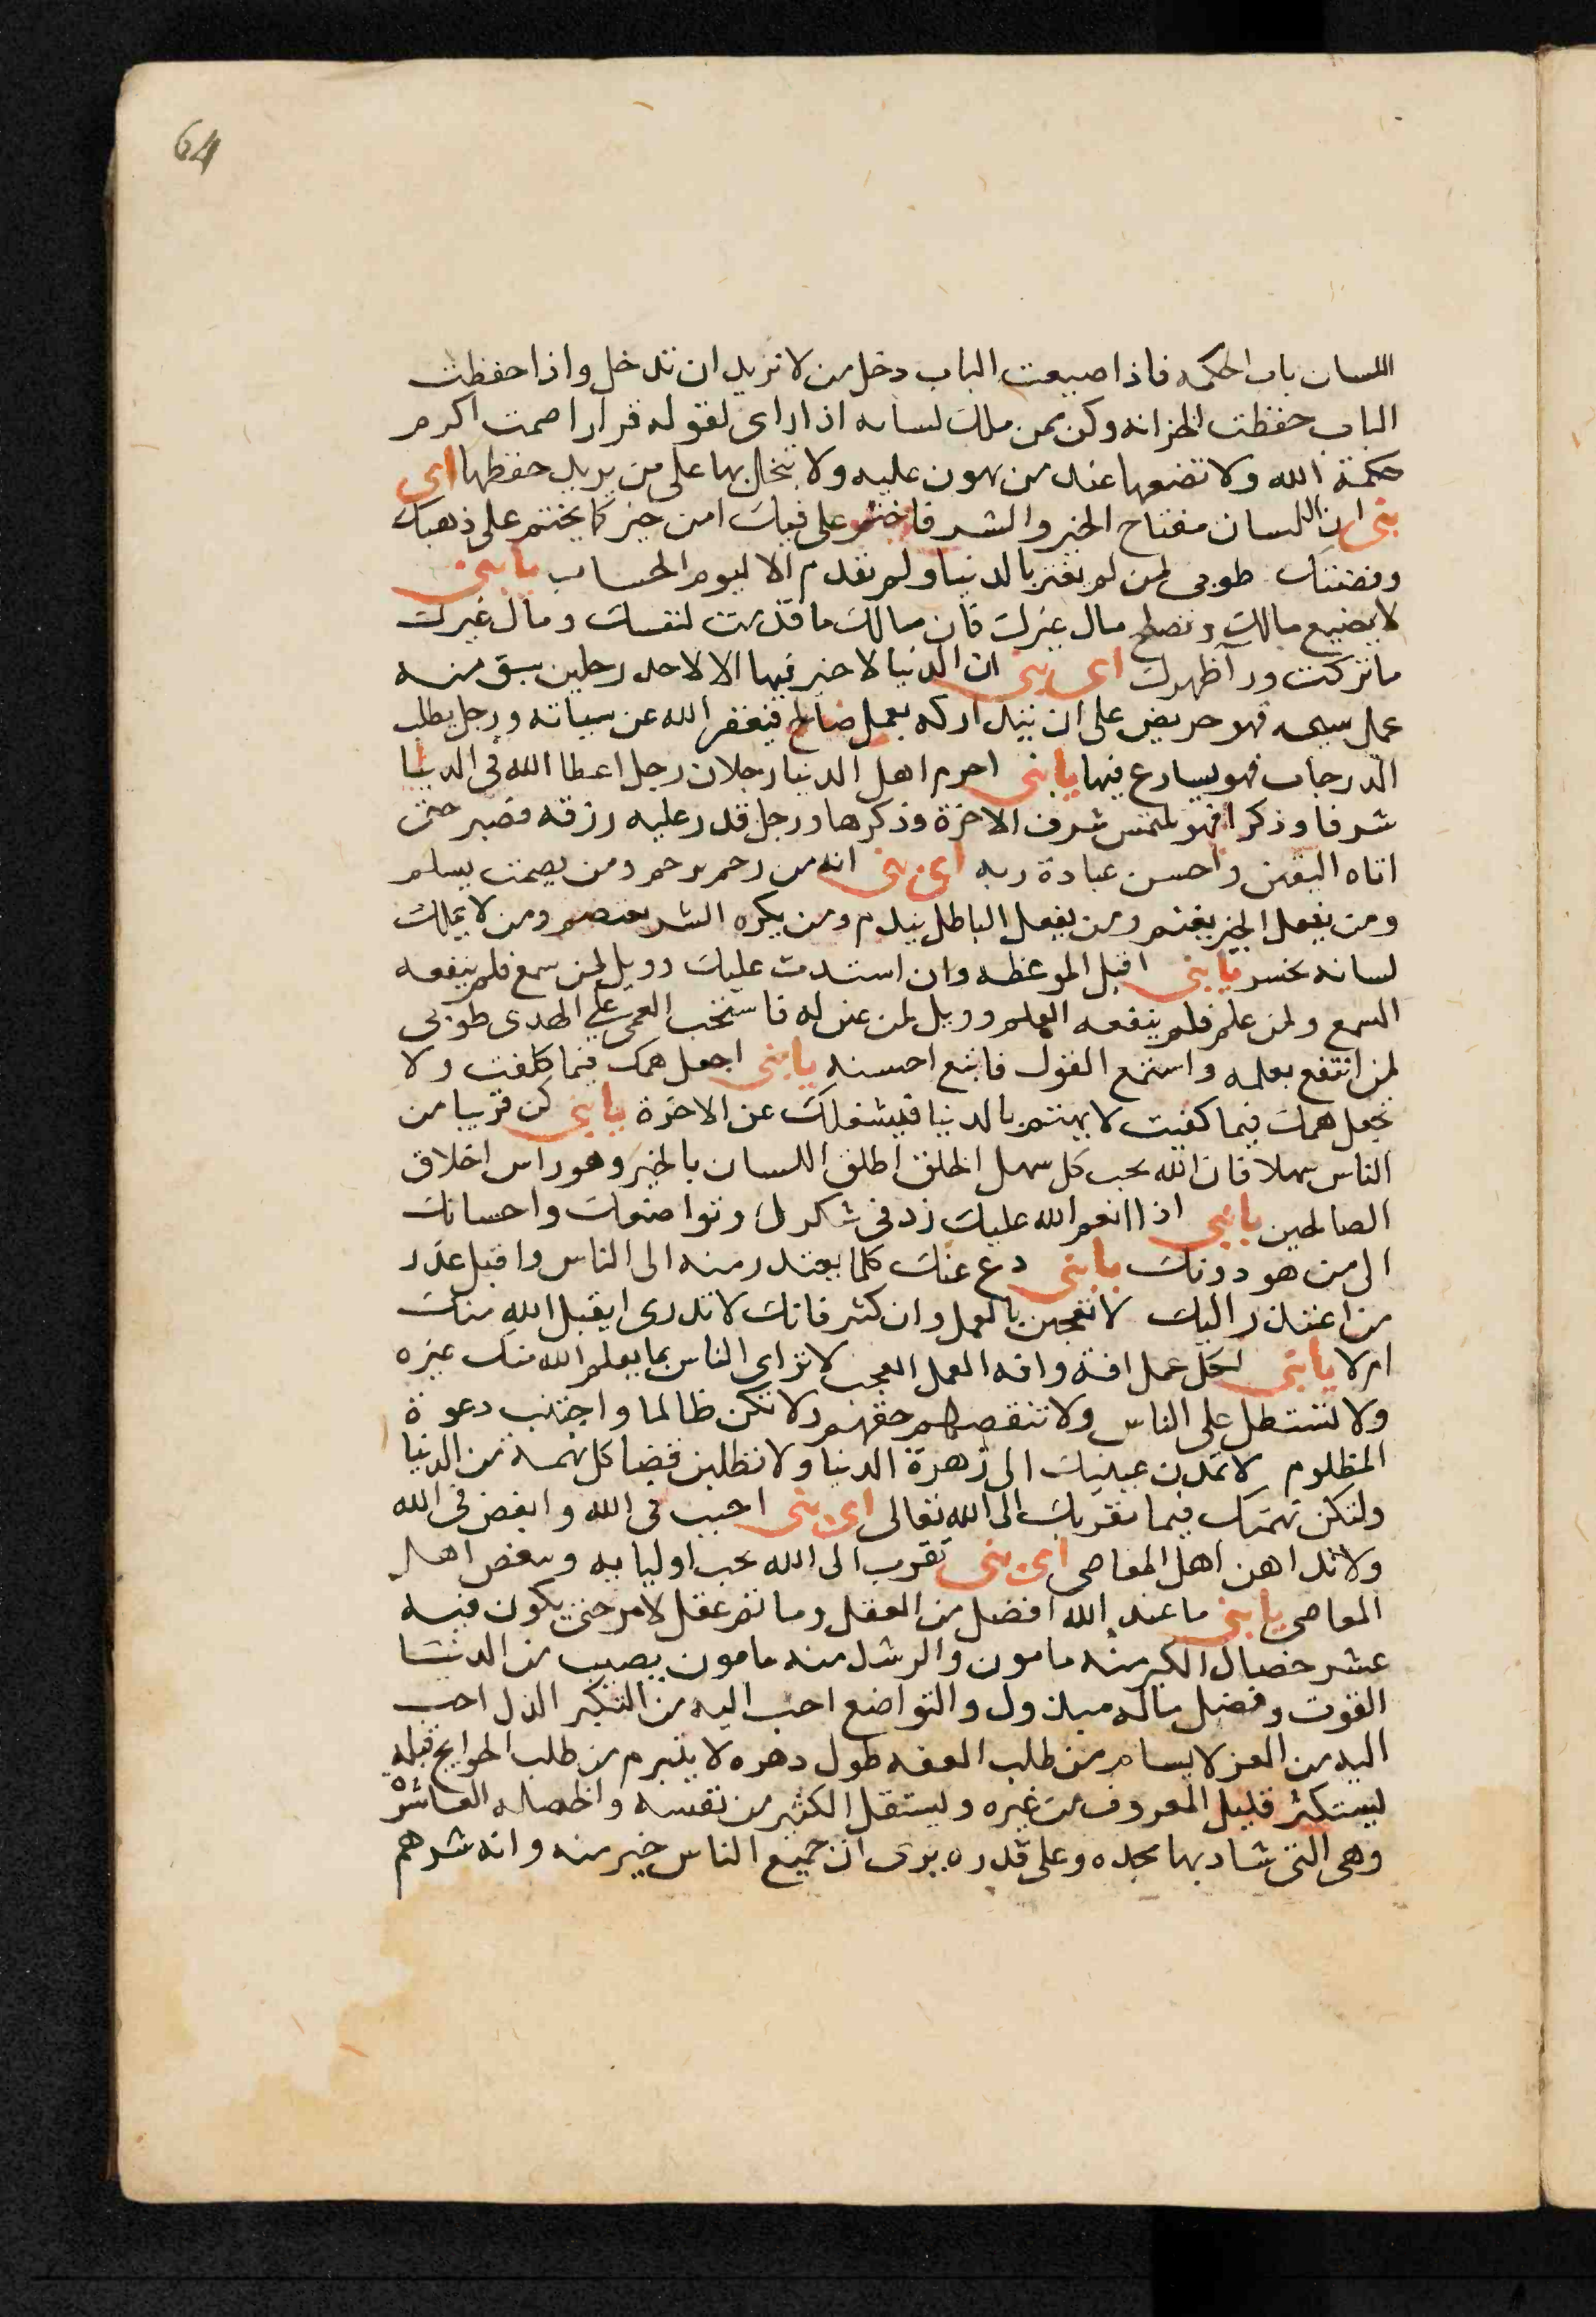 64
اللسان باب الحكمه فاذا ضيعت الباب دخل من لا تريد ان تدخل واذا حفظت
الباب حفظت الخزانه وكن ممن ملك لسانه اذا راى لقوله قرارا صمت اكرم
حكمة الله ولا تضعها عند من تهون عليه ولا تبخل بها على من يريد حفظها اى
بنى ان اللسان مفتاح الخير والشر فاختم على فيك امن خير كما يختم على ذهبك
وفضتك طوبى لمن لم يغتر بالدنيا ولم يقدم الا ليوم الحساب يا بنى
لا يضيع مالك وتصلح مال غيرك فان مالك ما قدمت لنفسك ومال غيرك
ما تركت ورآ ظهرك اى بنى ان الدنيا لا خير فيها الا لاحد رجلين سبق منه
عمل سيىء فهو حريص على ان يتداركه بعمل صالح فيغفر الله عن سياته ورجل يطلب
الدرجات فهو يسارع فيها يا بنى احرم اهل الدنيا رجلان رجل اعطا الله فى الدنيا
شرفا وذكرا فهو يلتمس شرف الاخرة وذكرها ورجل قدر عليه رزقه فصبر حتى
اتاه اليقين واحسن عبادة ربه اى بنى انه من رحم يرحم ومن يصمت يسلم
ومن يفعل الخير يغنم ومن يفعل الباطل يندم ومن يكره الشر يعتصم ومن لا يملك
لسانه يخسر يا بنى اقبل الموعظه وان استدت عليك وويل لمن سمع فلم ينفعه
السمع ولمن علم فلم ينفعه العلم وويل لمن عن له فاستحب العمى على الهدى طوبى
لمن انتفع بعلمه واستمع القول فاتبع احسنه يا بنى اجعل همك فيما كلفت ولا
تجعل همك فيما كفيت لا يهتم بالدنيا فيشغلك عن الاخرة يا بنى كن قريبا من
الناس سهلا فان الله يحب كل سهل الخلق اطلق اللسان بالخير وهو راس اخلاق
الصالحين يا بنى اذا انعم الله عليك زد فى شكرك وتواضعك واحسانك
الى من هو دونك يا بنى دع عنك كلما يعتذر منه الى الناس واقبل عذر
من اعتذر اليك لا تعجبن بالعمل وان كثر فانك لا تدرى ايقبل الله منك
ام لا يا بنى لكل عمل افة وافة العمل العجب لا تراى الناس بما يعلم الله منك غيره
ولا تستطل على الناس ولا تنقصهم حقهم ولا تكن ظالما واجتنب دعوة
المظلوم لا تمدن عينيك الى زهرة الدنيا ولا تطلبن قضا كل نهمة من الدنيا
ولتكن نهمتك فيما يقربك الى الله تعالى اى بنى احبب فى الله وابغض فى الله
ولا تداهن اهل المعاصى اى بنى تقرب الى الله بحب اوليايه وببغض اهل
المعاصى يا بنى ما عبد الله افضل من العقل وما تم عقل لامر حتى يكون فيه
عشر خصال الكبر منه مامون والرشد منه مامون يصيب من الدنيا
القوت وفضل ماله مبذول والتواضع احب اليه من التكبر الذل احب
اليه من العز لا يسام من طلب الفقه طول دهره لا يتبرم من طلب الحوايج قبله
يستكثر قليل المعروف من غيره ويستقل الكثير من نفسه والخصله العاشرة
وهى التى شاد بها مجده وعلى قدره يرى ان جميع الناس خير منه وانه شرهم